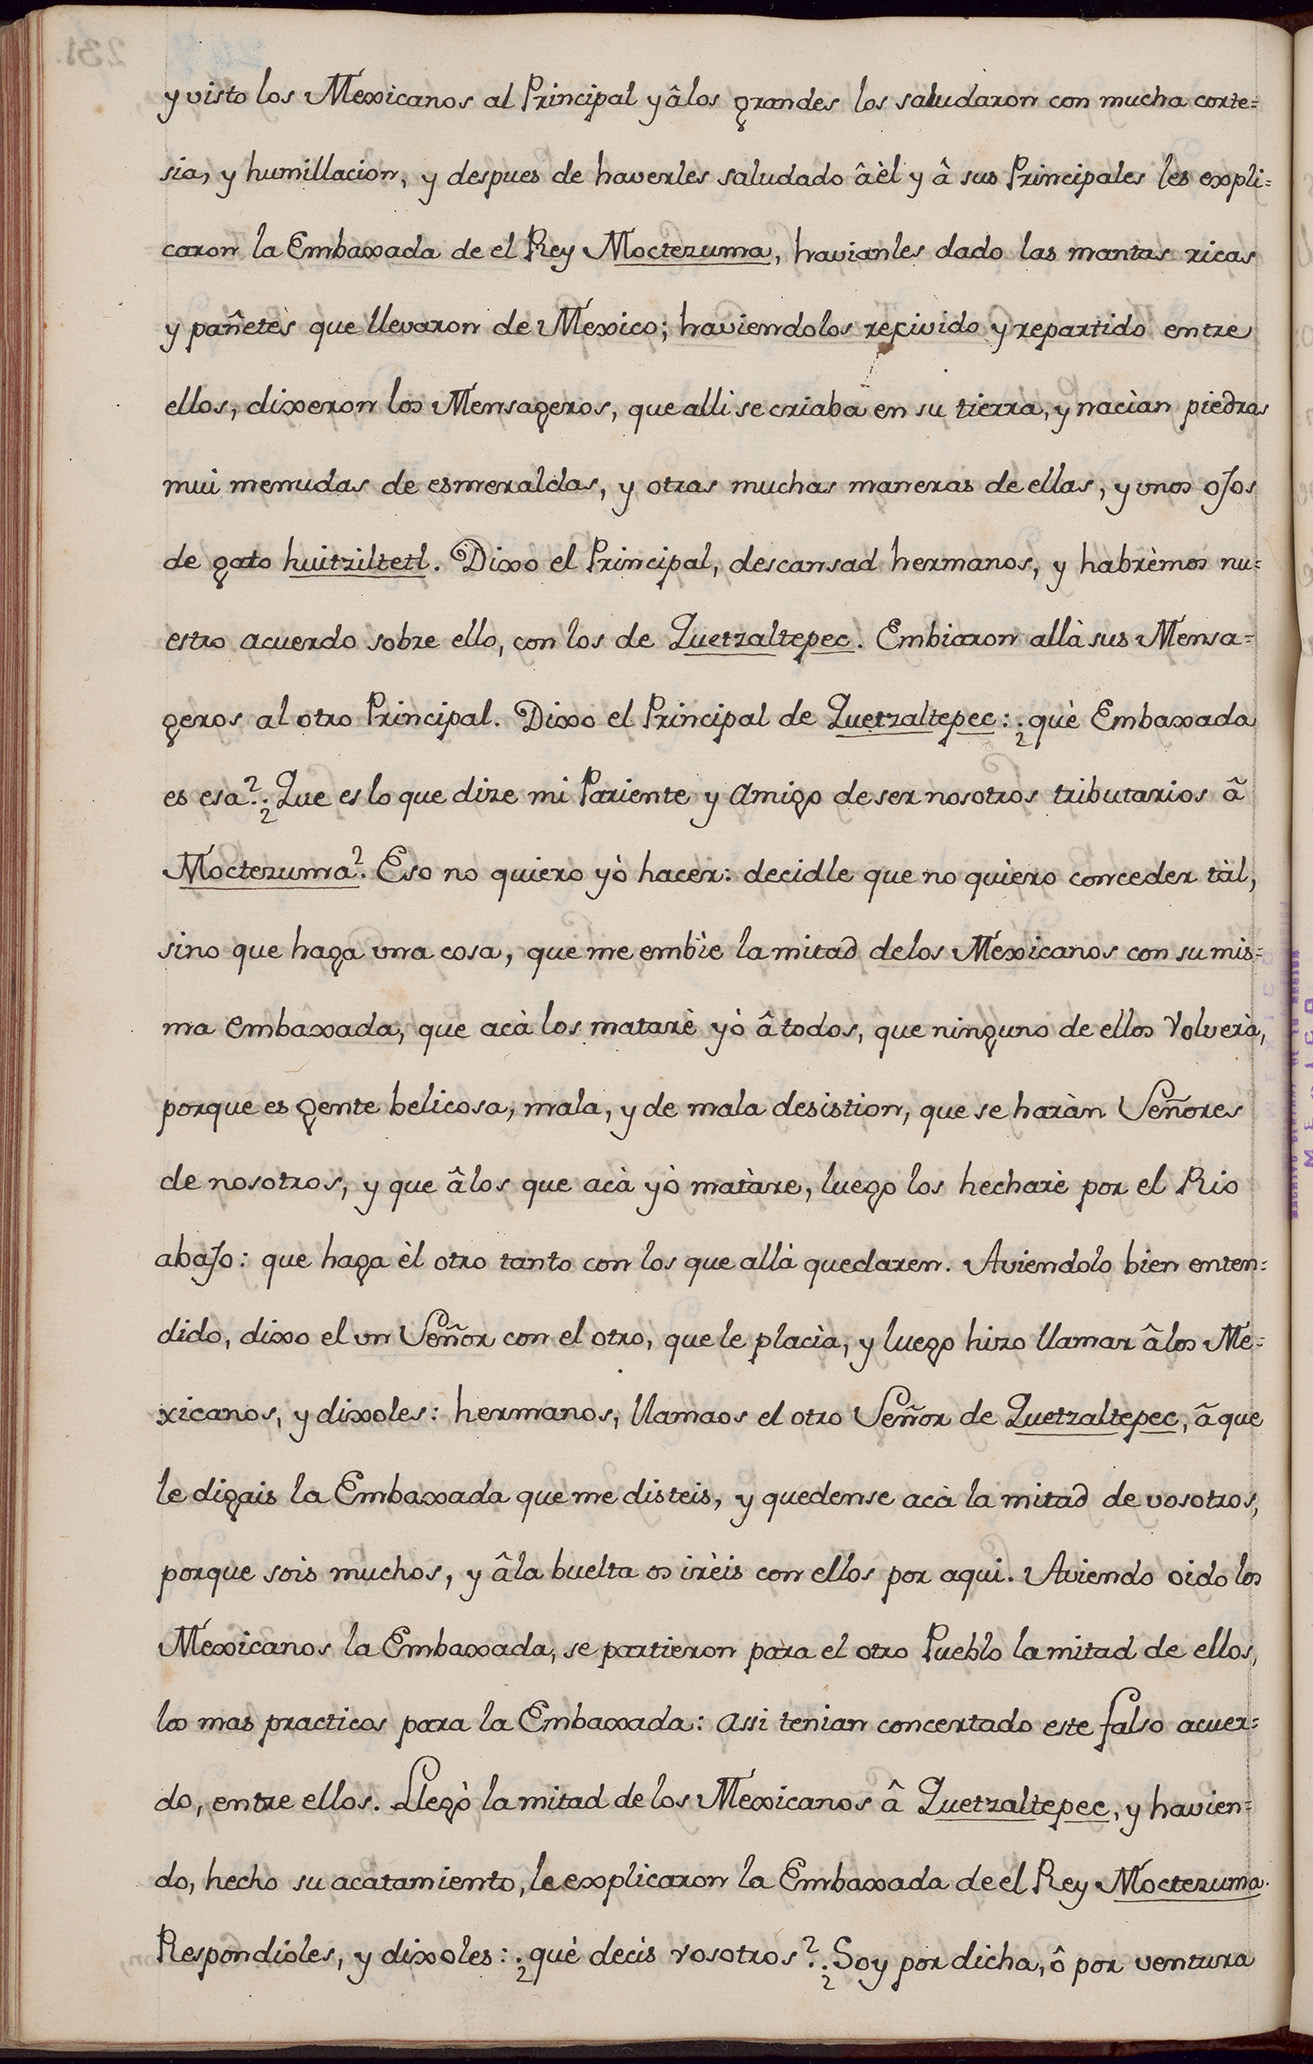 y visto los Mexicanos al Principal y âlos grandes los saludaron con mucha corte=
sia, y humillacion, y despues de haverles saludado âèl y â sus Principales les expli=
caron la Embaxada de el Rey Moctezuma, havianles dado las mantas ricas
y pañetes que llevaron de Mexico; haviendolos recivido y repartido entre
ellos, dixeron los Mensageros, que alli se criaba en su tierra, y nacìan piedras
mui menudas de esmeraldas, y otras muchas maneras de ellas, y unos ojos
de gato huitziltetl. Dixo el Principal, descansad hermanos, y habrèmos nu=
estro acuerdo sobre ello, con los de Quetzaltepec. Embiaron allà sus Mensa=
geros al otro Principal. Dixo el Principal de Quetzaltepec: ¿què Embaxada
es esa? ¿Que es lo que dize mi Pariente y Amigo de ser nosotros tributarios â
Moctezuma? Eso no quiero yò hacer: decidle que no quiero conceder tàl,
sino que haga una cosa, que me embìe la mitad delos Mexicanos con su mis=
ma embaxada, que acà los matarè yò â todos, que ninguno de ellos volverà,
porque es gente belicosa, mala, y de mala desistion, que se haràn Señores
de nosotros, y que âlos que acà yò matàre, luego los hecharè por el Rio
abajo: que haga èl otro tanto con los que allà quedaren. Aviendolo bien enten=
dido, dixo el un Señor con el otro, que le placìa, y luego hizo llamar âlos Me=
xicanos, y dixoles: hermanos, llamaos el otro Señor de Quetzaltepec, â que
le digais la Embaxada que me disteis, y quedense acà la mitad de vosotros,
porque sois muchos, y âla buelta os irèis con ellos por aqui. Aviendo oido los
Mexicanos la Embaxada, se partieron para el otro Pueblo la mitad de ellos,
los mas practicos para la Embaxada: assi tenian concertado este falso acuer=
do, entre ellos. Llegò la mitad de los Mexicanos â Quetzaltepec, y havien=
do, hecho su acatamiento, le explicaron la Embaxada de el Rey Moctezuma.
Respondioles, y dixoles: ¿què decis vosotros? ¿Soy por dicha, ô por ventura